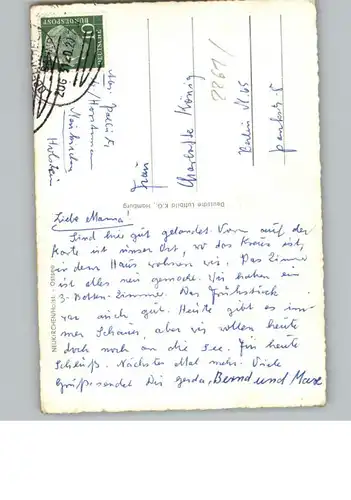 Liebe Mama!
Sind hier gut gelandet. Vorn auf der
Karte ist unser Ort, wo das Kreuz ist,
in dem Haus wohnen wir. Das Zimmer
ist alles neu gemacht. Wir haben ein
3-Betten-Zimmer. Das Frühstück
war auch gut. Heute gibt es im-
mer Schauer, aber wir wollen heute
doch noch an die See. Für heute
Schluß. Nächstes Mal mehr. Viele
Grüße sendet Dir Gerda, Bernd und
Frau
Charlotte König
Berlin N.65
2261/
Neukirchen
Holstein
Deutsche Luftbild K.G., Hamburg
NEUKIRCHEN/Holst. - Ostsee
DEUTSCHE
BUNDESPOST
10